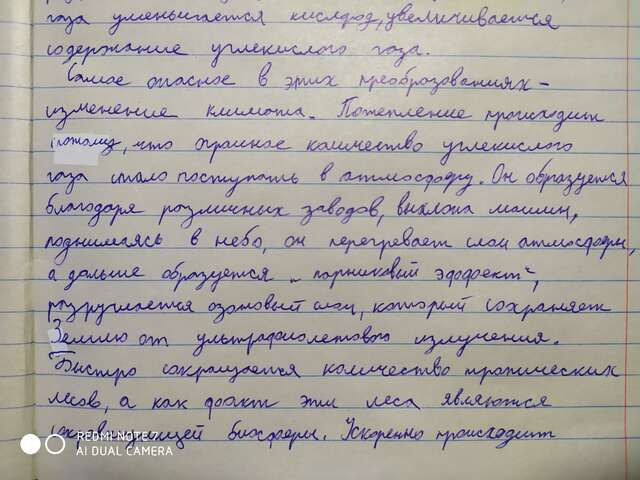 газа уменьшается кислород, увеличивается
содержание углекислого газа.
Самое опасное в этих преобразованиях -
изменение климата. Потепление происходит
потому, что огромное количество углекислого
газа стало поступать в атмосферу. Он образуется
благодаря различных заводов, выхлопа машин,
поднимаясь в небо, он перегревает слои атмосферы,
а дальше образуется „парниковый эффект",
разрушается озоновый слой, который сохраняет
Землю от ультрафиолетового излучения.
Быстро сокращается количество тропических
лесов, а как факт эти леса являются
сокровищницей биосферы. Ускоренно происходит
REDMI NOTE 7
AI DUAL CAMERA